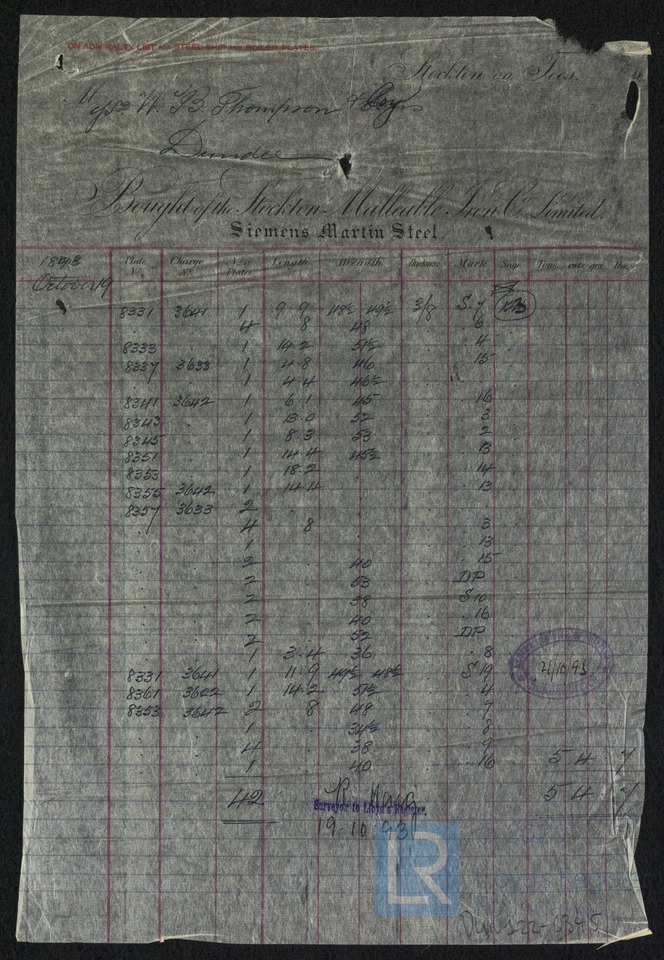 ON ADMIRALTY LIST FOR STEEL SHIP AND BOILER PLATES.
Stockton on Tees,
Messrs W. B. Thompson & Coy
Dundee
Bought of the Stockton Malleable Iron Co Limited.
Siemens Martin Steel.
1893 Plate No Charge No No of Plates Length Breadth Thickness Mark Ship Tons. cwts. qrs. lbs.
October 19
8331 3641 1 9 9 48½ 49½ 3/8 S 7 113
. . 4 . 8 48 . 6
8333 . 1 14 2 51½ . 4
8337 3633 1 4 8 46 . 15
. . 1 4 4 46½ .
8341 3642 1 6 1 45 . 16
8343 . 1 13 0 52 . 3
8345 . 1 8 3 53 . 2
8351 . 1 14 4 45½ . 13
8353 . 1 18 2 . . 14
8355 3642 1 14 4 . . 13
8357 3633 2 . .
. . 4 . 8 . . 3
. . 1 . . . 13
. . 2 . 40 . 15
. . 2 . 53 DP
. . 2 . 38 S 10
. . 2 . 40 . 16
. . 2 . 52 DP
. . 1 3 4 36 . 8
8331 3641 1 11 9 49½ 48½ S 19
8361 3622 1 14 2 51½ . 4
8353 3642 2 . 8 48 . 7
. . 1 . 34½ . 8
. . 4 . 38 . 9
. . 1 . 40 . 16 5 4 7
42 5 4 7
21/10/93
Surveyor to Lloyd's Register,
19.10.93
LR